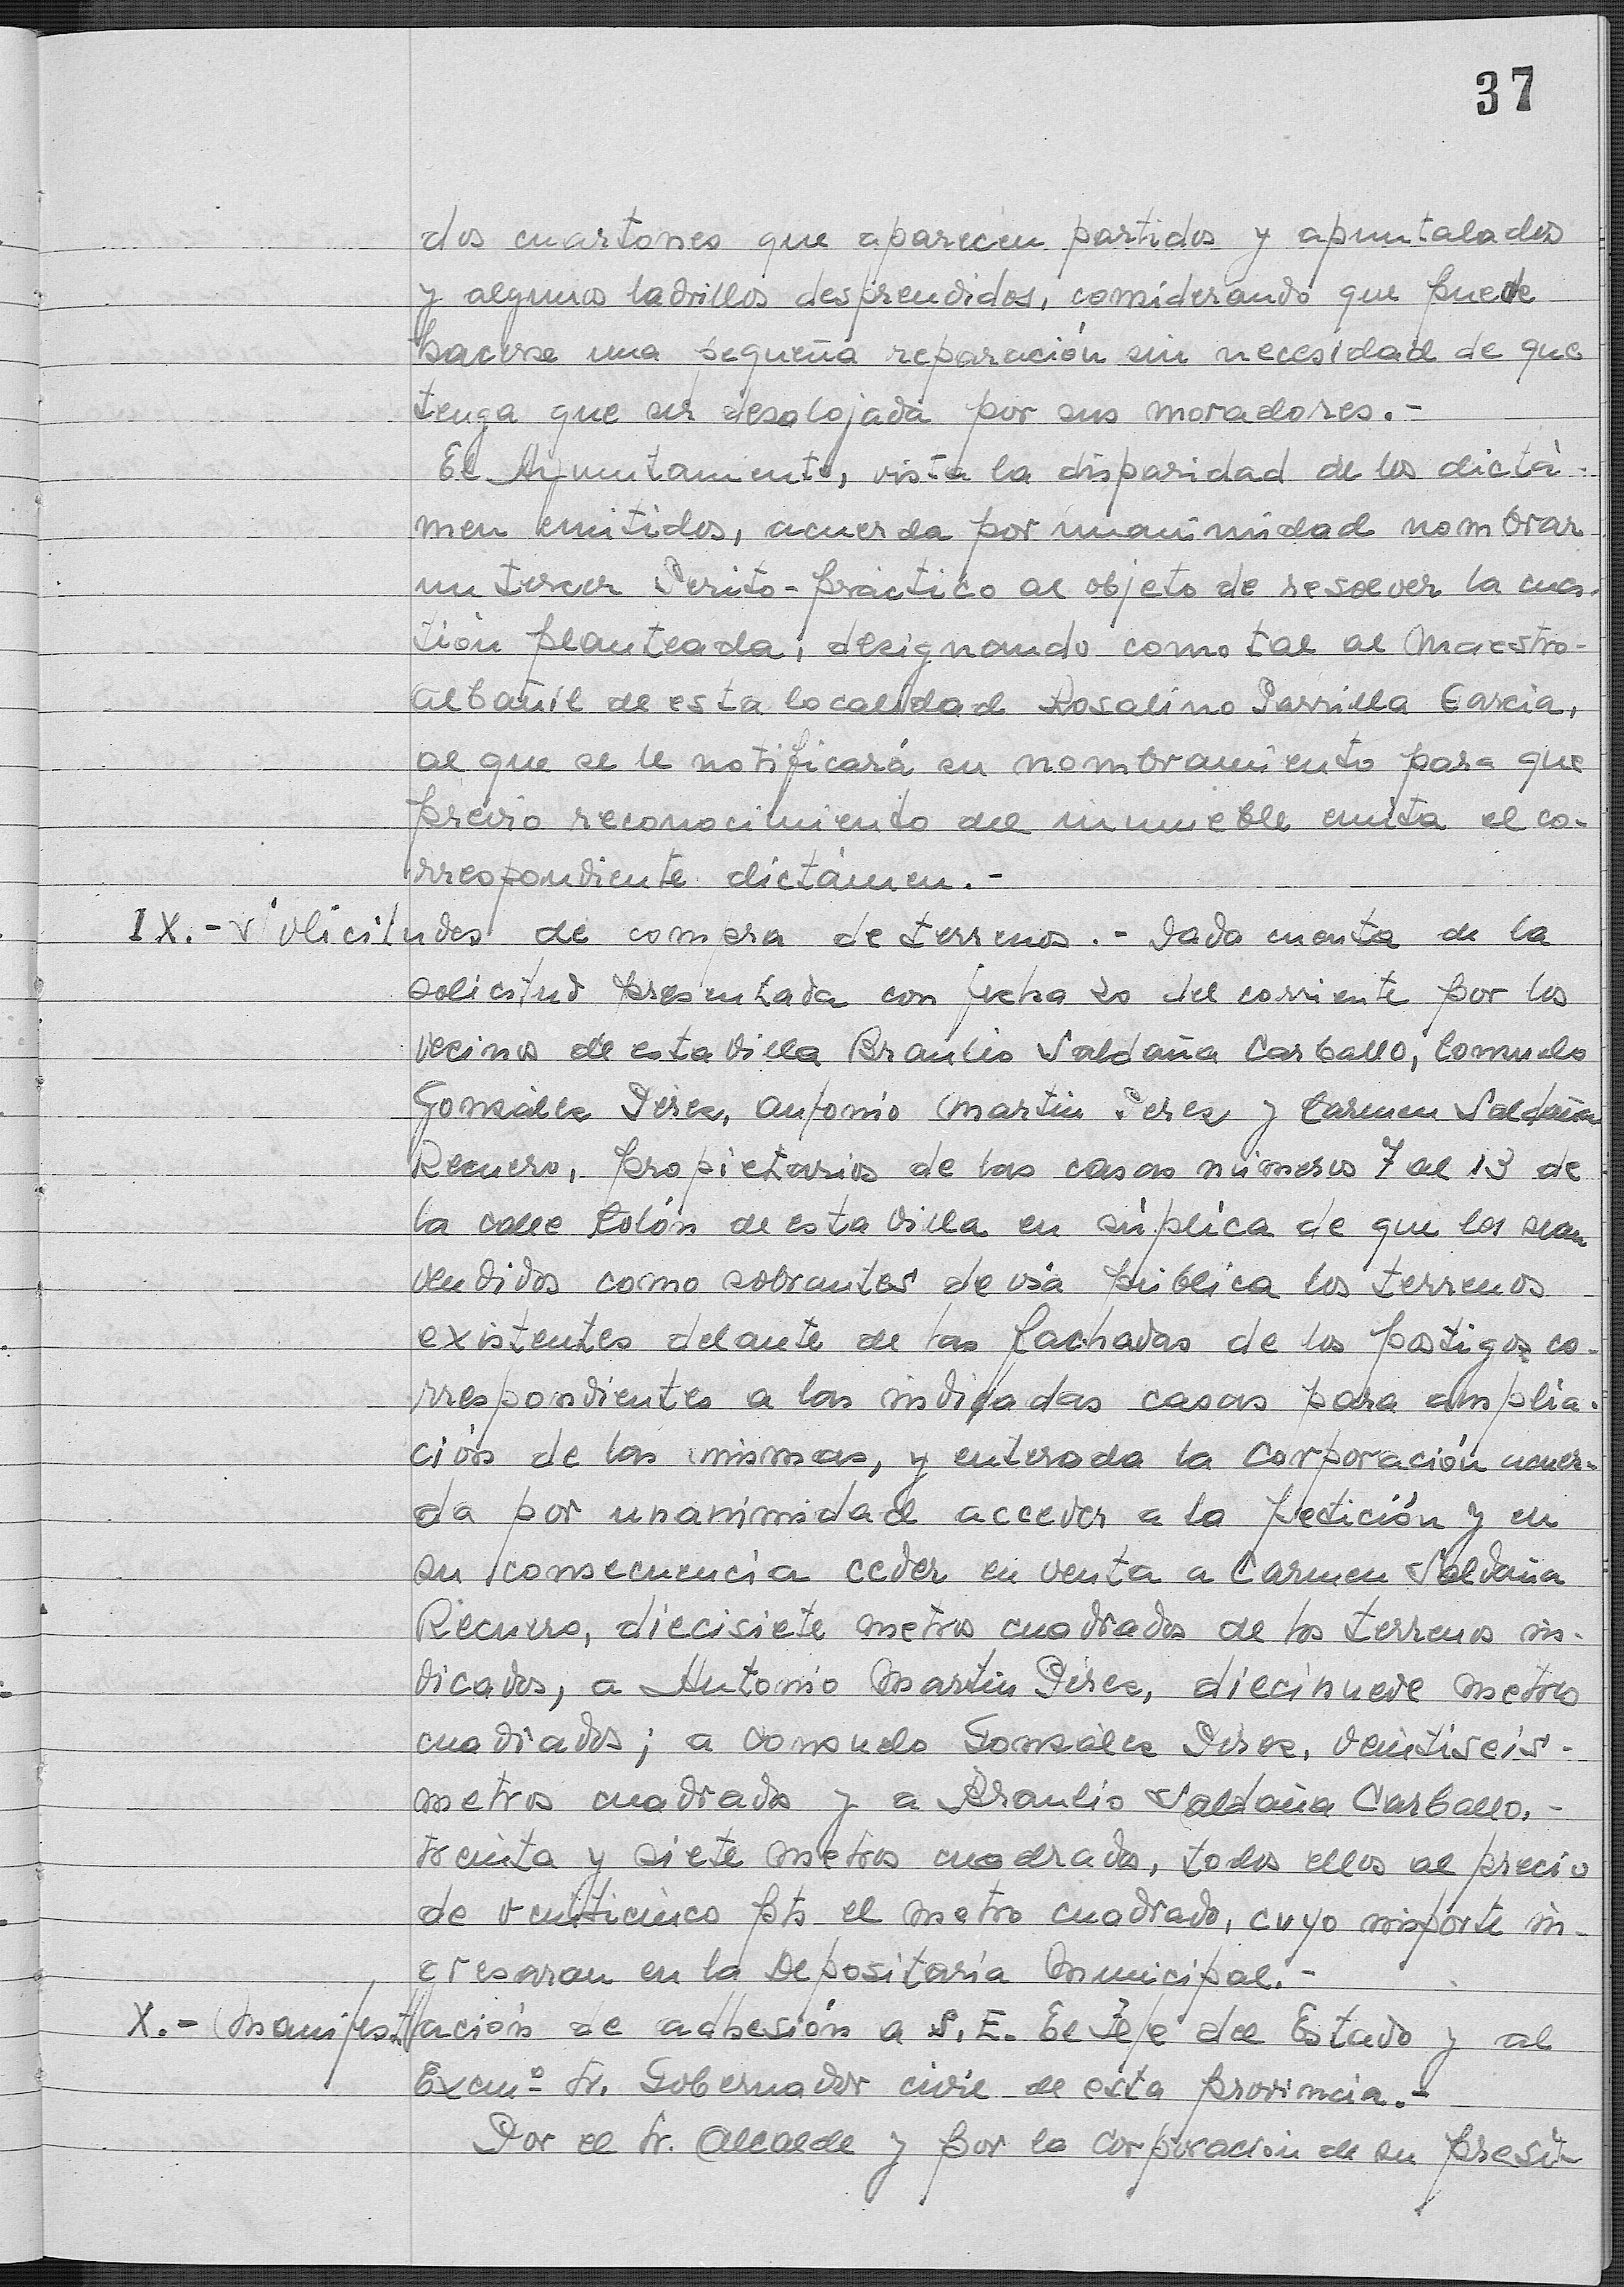 37
dos cuartones que aparecen partidos y apuntalados
y algunos ladrillos desprendidos, considerando que puede
hacerse una pequeña reparación sin necesidad de que
tenga que ser desalojada por sus moradores.-
El Ayuntamiento, vista la disparidad de los dictá-
men emitidos, acuerda por unanimidad nombrar
un tercer Perito-práctico al objeto de resolver la cues-
tión planteada, designando como tal al Maestro-
albañil de esta localidad Rosalino Parrilla García,
al que se le notificará su nombramiento para que
previo reconocimiento del inmueble emita el co-
rrespondiente dictámen.-
IX.- Solicitudes de compra de terrenos.- Dada cuenta de la
solicitud presentada con fecha 20 del corriente por los
vecinos de esta villa Braulio Saldaña Carballo, Consuelo
González Pérez, Antonio Martin Perez y Carmen Saldaña
Recuero, propietarios de las casas números 7 al 13 de
la calle Colón de esta villa en súplica de que les sean
vendidos como sobrantes de vía pública los terrenos
existentes delante de las fachadas de los postigos co-
rrespondientes a las indicadas casas para amplia-
ción de las mismas, y enterada la Corporación acuer-
da por unanimidad acceder a la petición y en
su consecuencia ceder en venta a Carmen Saldaña
Recuero, diecisiete metros cuadrados de los terrenos in-
dicados, a Antonio Martin Pérez, diecinueve metros
cuadrados; a Consuelo González Pérez, veintiseis-
metros cuadrados y a Braulio Saldaña Carballo.-
treinta y siete metros cuadrados, todos ellos al precio
de veinticinco pts el metro cuadrado, cuyo importe in-
gresaran en la Depositaría Municipal.-
X.- Manifestación de adhesión a S.E. El Jefe del Estado y al
Excmº Sr. Gobernador civil de esta provincia.-
Por el Sr. Alcalde y por la corporación de su presi-